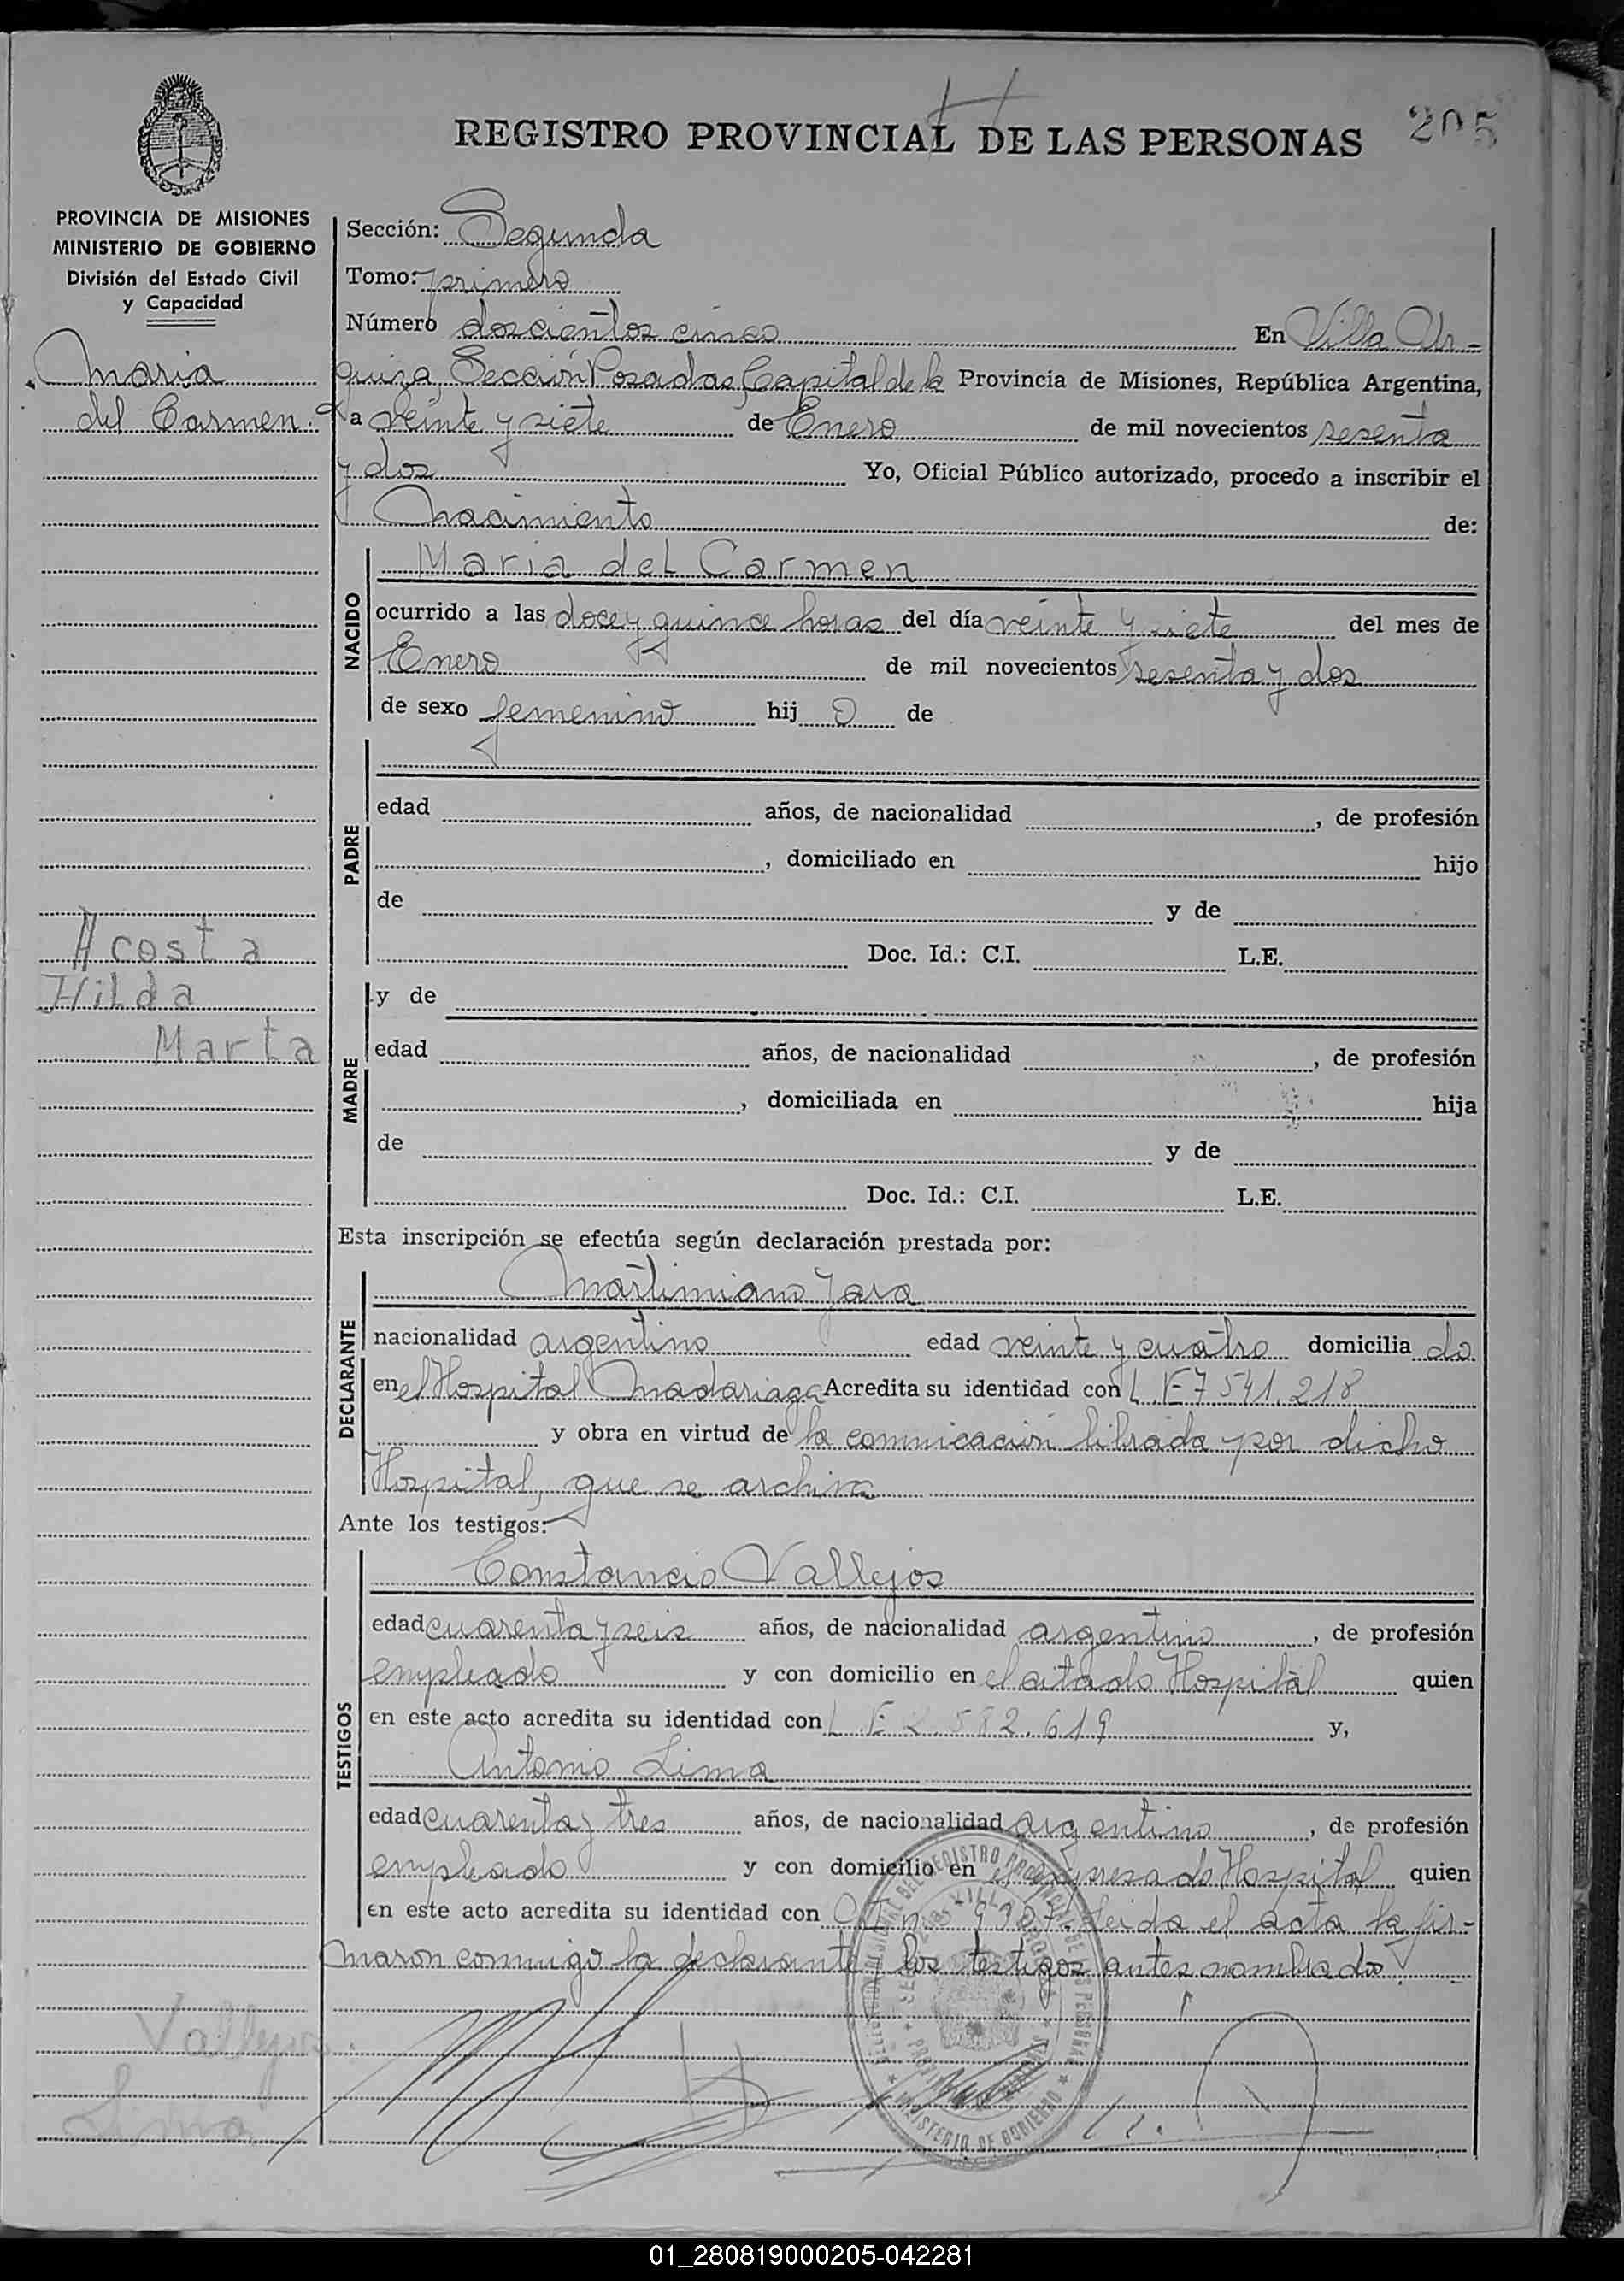 205
REGISTRO PROVINCIAL DE LAS PERSONAS
PROVINCIA DE MISIONES
MINISTERIO DE GOBIERNO
División del Estado Civil
y Capacidad
Maria
del Carmen.
Acosta
Hilda
Marta
Vallejos.
Lima
Sección: Segunda
Tomo: primero
Número doscientos cinco En Villa Ur-
quiza, Sección Posadas, Capital de la Provincia de Misiones, República Argentina,
a veinte y siete de Enero de mil novecientos sesenta
y dos Yo, Oficial Público autorizado, procedo a inscribir el
Nacimiento de:
NACIDO
Maria del Carmen
ocurrido a las doce y quince horas del día veinte y siete del mes de
Enero de mil novecientos sesenta y dos
de sexo femenino hij a de
PADRE
edad años, de nacionalidad , de profesión
, domiciliado en hijo
de y de
Doc. Id.: C.I. L.E.
MADRE
y de
edad años, de nacionalidad , de profesión
, domiciliada en hija
de y de
Doc. Id.: C.I. L.E.
Esta inscripción se efectúa según declaración prestada por:
DECLARANTE
Martimiano Jara
nacionalidad argentino edad veinte y cuatro domicilia do
en el Hospital Madariaga Acredita su identidad con L.E 7.541.218
y obra en virtud de la comunicación librada por dicho
Hospital, que se archiva
Ante los testigos:
TESTIGOS
Constancio Vallejos
edad cuarenta y seis años, de nacionalidad argentino , de profesión
empleado y con domicilio en el citado Hospital quien
en este acto acredita su identidad con L E 2.582.619 y,
Antonio Lima
edad cuarenta y tres años, de nacionalidad argentino , de profesión
empleado y con domicilio en Hospital quien
en este acto acredita su identidad con Leida el acta la fir-
maron conmigo la declarante y los testigos antes nombrados.
MINISTERIO DE GOBIERNO
01_280819000205-042281